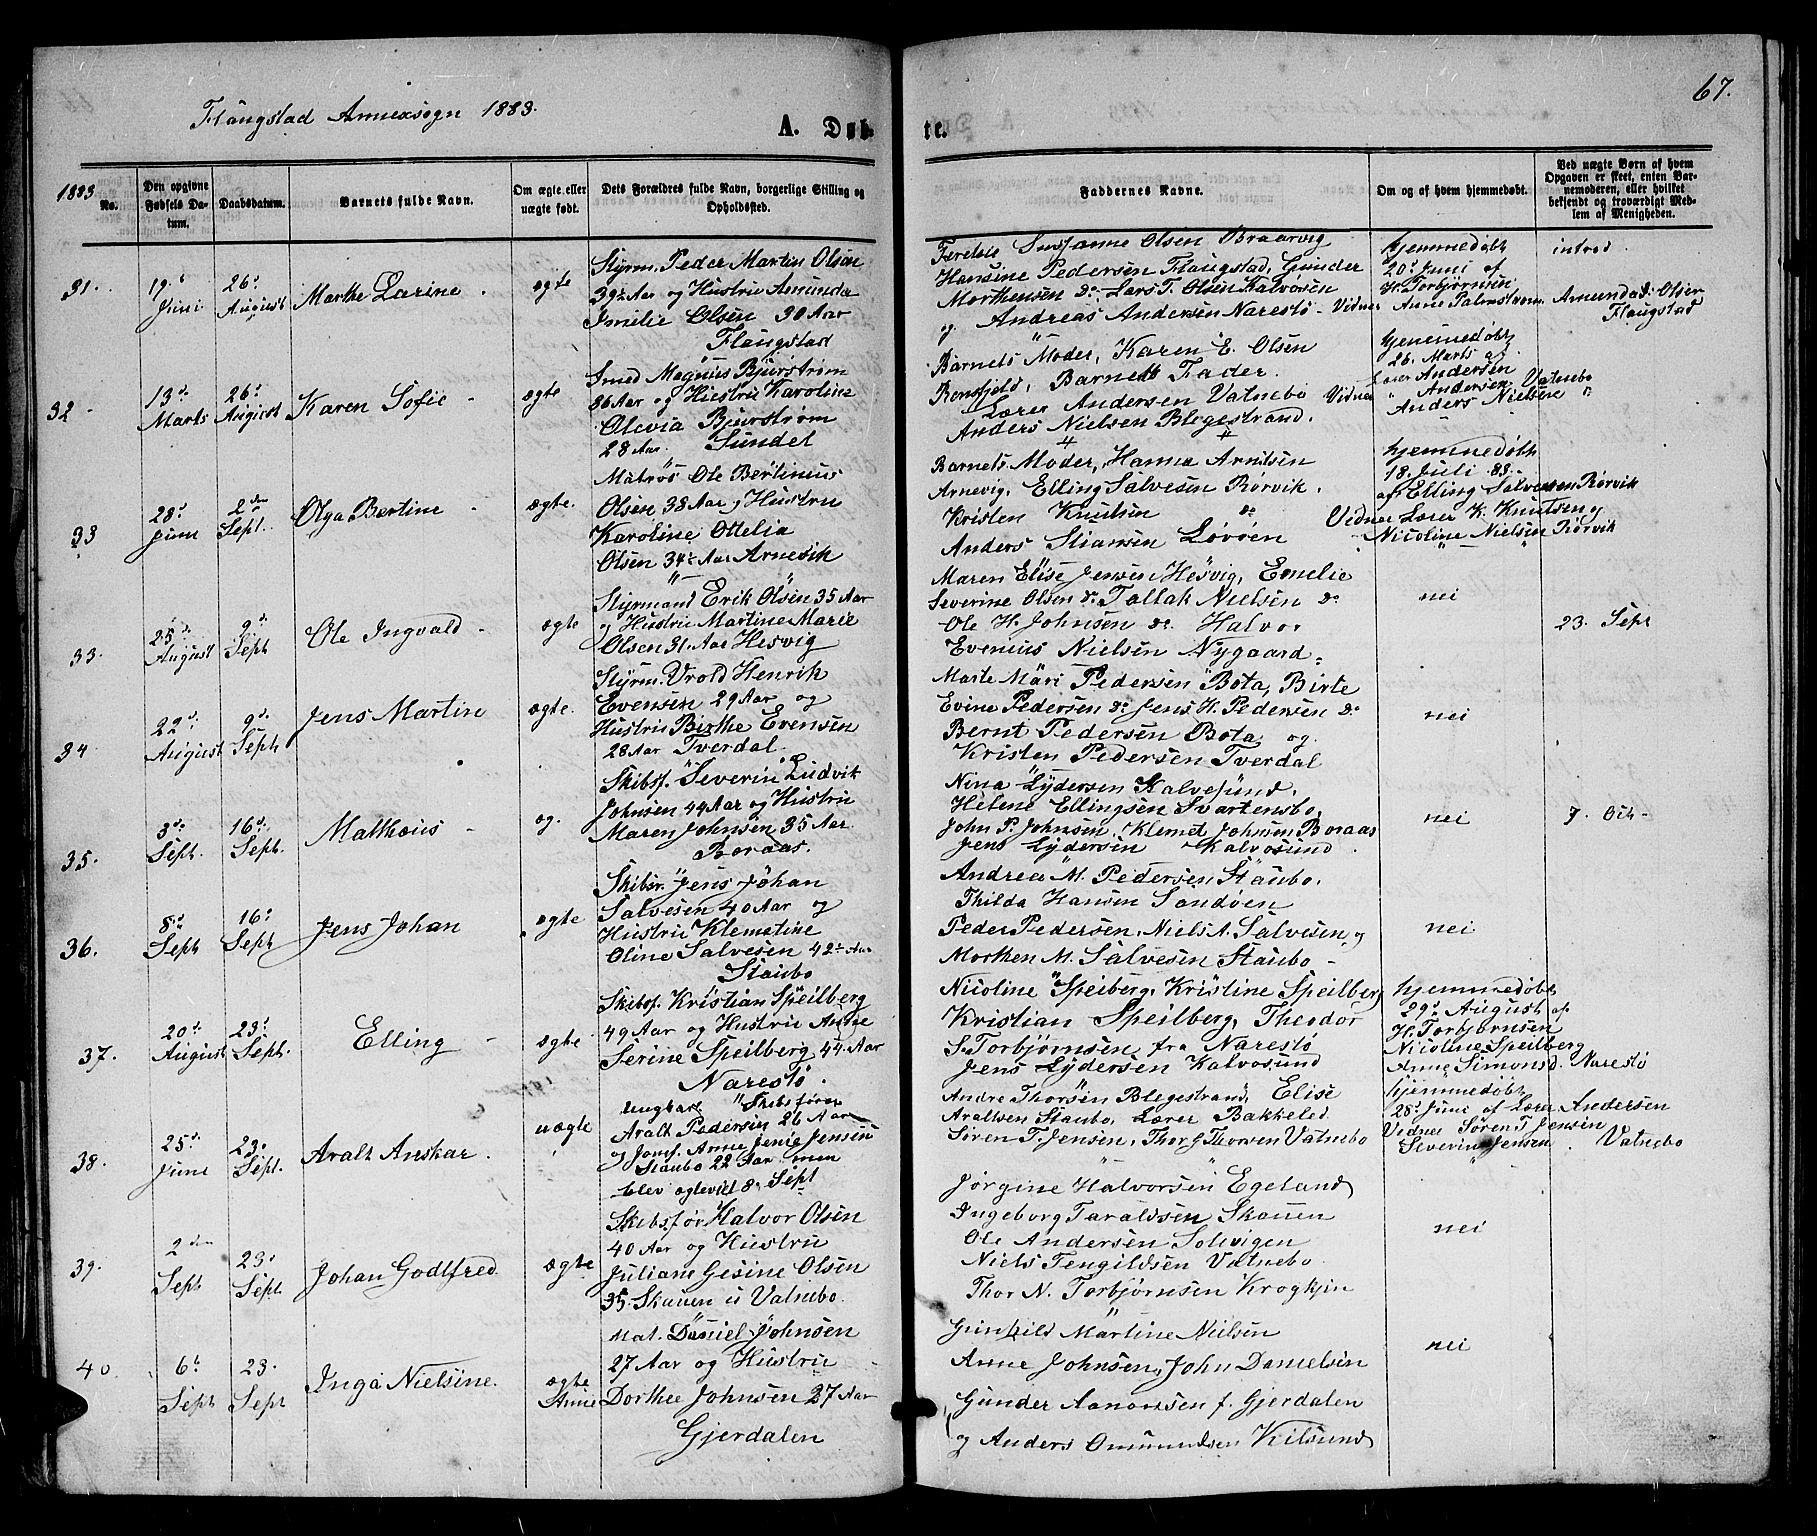 Flaugstad Annexsogn 1883.
A. Døb
te.
67.
1883
No.
Den opgivne Fødsels Da-tum.
Daabsdatum.
Barnets fulde Navn.
Om ægte eller uægte født.
Dets Forældres fulde Navn, borgerlige Stilling og Opholdssted.
Faddernes Navne.
Om og af hvem hjemmedøbt.
Ved uægte Børn af hvem Opgaven er skeet, enten Bar-nemoderen, eller hvilket bekjendt og troværdigt Med-lem af Menigheden.
31.
19.
Juni
26.
August
Marthe Larine
ægte
Styrm. Peder Martin Olsen
39 Aar og Hustru Amunda
Emilie Olsen 30 Aar
Flaugstad
Susjanne Olsen Braarvig
Hansine Pedersen Flaugstad, Gunder
Morthensen do. Lars T. Olsen Kalvøsøen
og Andreas Andersen Narestø - Vidner
hjemmedøbt
20. Juni af
H. Torbjørnsen
Anne Palmstrøm
Amunda Olsen
Flaugstad
32
13.
Marts
26.
August
Karen Sofie
ægte
Smed Magnus Bjurstrøm
36 Aar og Hustru Karoline
Olevia Bjurstrøm
28 Aar Sundet
Barnets Moder, Karen E. Olsen
Bonsfjeld, Barnets Fader.
Lærer Andersen Vatnebo
Anders Nielsen Blegestrand.
hjemmedøbt
26. Marts af
Lærer Andersen
Vidner Andersen Vatnebo
Anders Nielsen
33
28.
Juni
2den
Sept.
Olga Bertine
ægte.
Matros Ole Bertinius
Olsen 38 Aar og Hustru
Karoline Ottelia
Olsen 34 Aar Arnevik
Barnets Moder, Hanna Arntsen
Arnevig, Elling Salvesen Rørvik.
Kristen Knutsen do
Anders Stiansen Løvøen
hjemmedøbt
18. Juli 83
af Elling Salvesen Rørvik
Vidner Lærer K. Knutsen og
Nicoline Nielsen Rørvik
33.
25.
August
9.
Sept
Ole Ingvald
ægte
Styrmand Erik Olsen 35 Aar
og Hustru Martine Marie
Olsen 31 Aar Hesvig
Maren Elise Jensen Hesvig, Emelie
Severine Olsen do Tallak Nielsen do
Ole H. Johnsen do. Halvor
Evenius Nielsen Nygaard.
nei
23. Sept
34
22.
August
9.
Sept
Jens Martin
ægte.
Styrm. Vrold Henrik
Evensen 29 Aar og
Hustru Birthe Evensen
28 Aar Tverdal.
Marte Mari Pedersen Bota, Birte
Evine Pedersen do Jens H. Pedersen do
Bernt Pedersen Bota og
Kristen Pedersen Tverdal
nei
35.
3.
Sept.
16.
Sept.
Matthæus
æg.
Skibsf. Severin Ludvik
Johnsen 44 Aar og Hustru
Maren Johnsen 35 Aar
Boraas.
Nina Lydersen Kalvesund.
Helene Ellingsen Svartensbo.
John P. Johnsen, Klemet Johnsen Boraas
Jens Lydersen Kalvøsund.
nei
7. Oct.
36.
8.
Sept
16.
Sept
Jens Johan
ægte
Skibsr. Jens Johan
Salvesen 40 Aar og
Hustru Klemetine
Oline Salvesen 42 Aar
Staubo
Andrea M. Pedersen Staubo.
Thilda Hansen Sandøen
Peder Pedersen, Niels A. Salvesen og
Morthen M. Salvesen Staubo
nei
37.
20.
August
23.
Sept.
Elling
ægte
Skibsf. Kristian Speilberg
49 Aar og Hustru Anne
Serine Speilberg 44 Aar
Narestø.
Nicoline Speiberg, Kristine Speilberg
Kristian Speilberg, Theodor
S. Torbjørnsen fra Narestø
Jens Lydersen Kalvøsund
hjemmedøbt
29. August af
H. Torbjørnsen
Nicoline Speilberg
Anne Simonsd. Narestø
38.
25.
Juni
23.
Sept.
Aralt Anskar.
uægte
Ungkarl Skibsfører
Aralt Pedersen 26 Aar
og Jomf. Anne Jenie Jensen
Staubo 22 Aar men
blev ægteviet 8. Sept
Andre Thorsen Blegestrand, Elise
Araltsen Staubo, Lærer Bakkeled
Søren T. Jensen, Thor G. Thorsen Vatnebo
hjemmedøbt
28. Juni af Lærer Andersen
Vidner Søren T. Jensen
Severin Jensen Vatnebo
39.
2den
Sept
23.
Sept.
Johan Godtfred
ægte
Skibsfør Halvor Olsen
40 Aar og Hustru
Juliane Gesine Olsen
35 Skauen u Vatnebo.
Jørgine Halvorsen Egeland
Ingeborg Taraldsen Skauen
Ole Andersen Solvigen
Niels Tengildsen Vatnebo.
Thor N. Torbjørnsen Krogkjin
nei
40.
6.
Sept
23.
Sept
Inga Nielsine.
ægte
Mat. Daniel Johnsen
27 Aar og Hustru
Anne Dorthea Johnsen 27 Aar
Gjerdalen
Gunhild Martine Nielsen
Anne Johnsen, John Danielsen
Gunder Aanonsen f. Gjerdalen
og Anders Omundsen Kilsund
nei